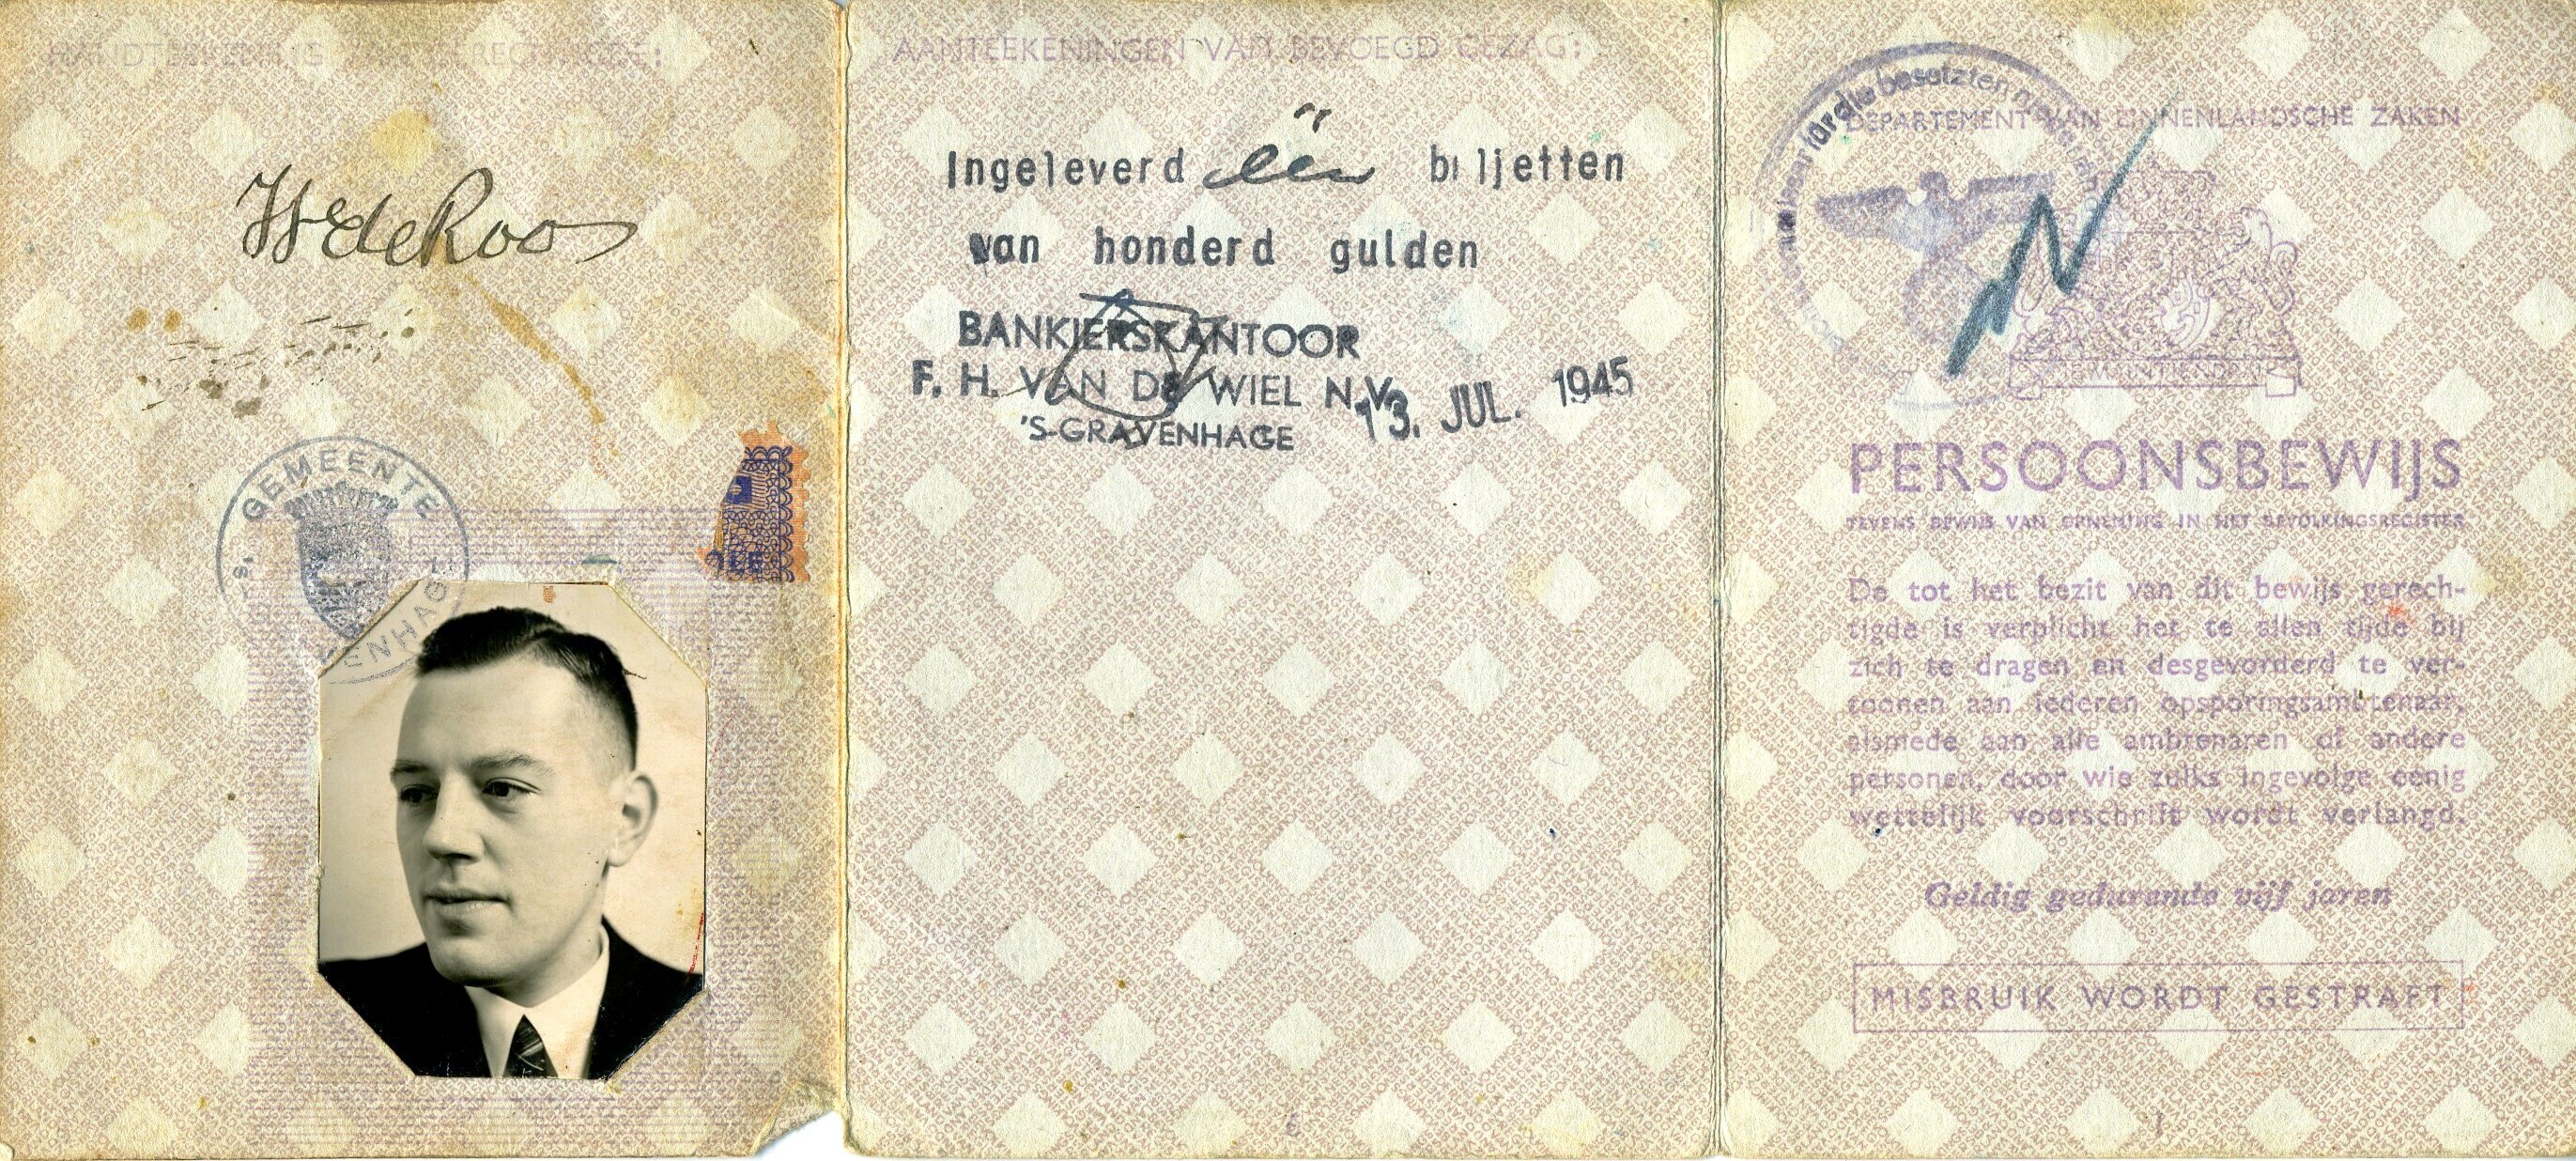 HANDTEEKENING VAN GERECHTIGDE:
WdeRoos
GEMEENTE
'S-GRAVENHAGE
AANTEEKENINGEN VAN BEVOEGD GEZAG:
Ingeleverd één biljetten
van honderd gulden
BANKIERSKANTOOR
F. H. VAN DE WIEL N.V.
'S-GRAVENHAGE
13. JUL. 1945
6
für die besetzten
DEPARTEMENT VAN BINNENLANDSCHE ZAKEN
JE MAINTIENDRAI
PERSOONSBEWIJS
TEVENS BEWIJS VAN OPNEMING IN HET BEVOLKINGSREGISTER
De tot het bezit van dit bewijs gerech-
tigde is verplicht het te allen tijde bij
zich te dragen en desgevorderd te ver-
toonen aan iederen opsporingsambtenaar,
alsmede aan alle ambtenaren of andere
personen, door wie zulks ingevolge eenig
wettelijk voorschrift wordt verlangd.
Geldig gedurende vijf jaren
MISBRUIK WORDT GESTRAFT
1